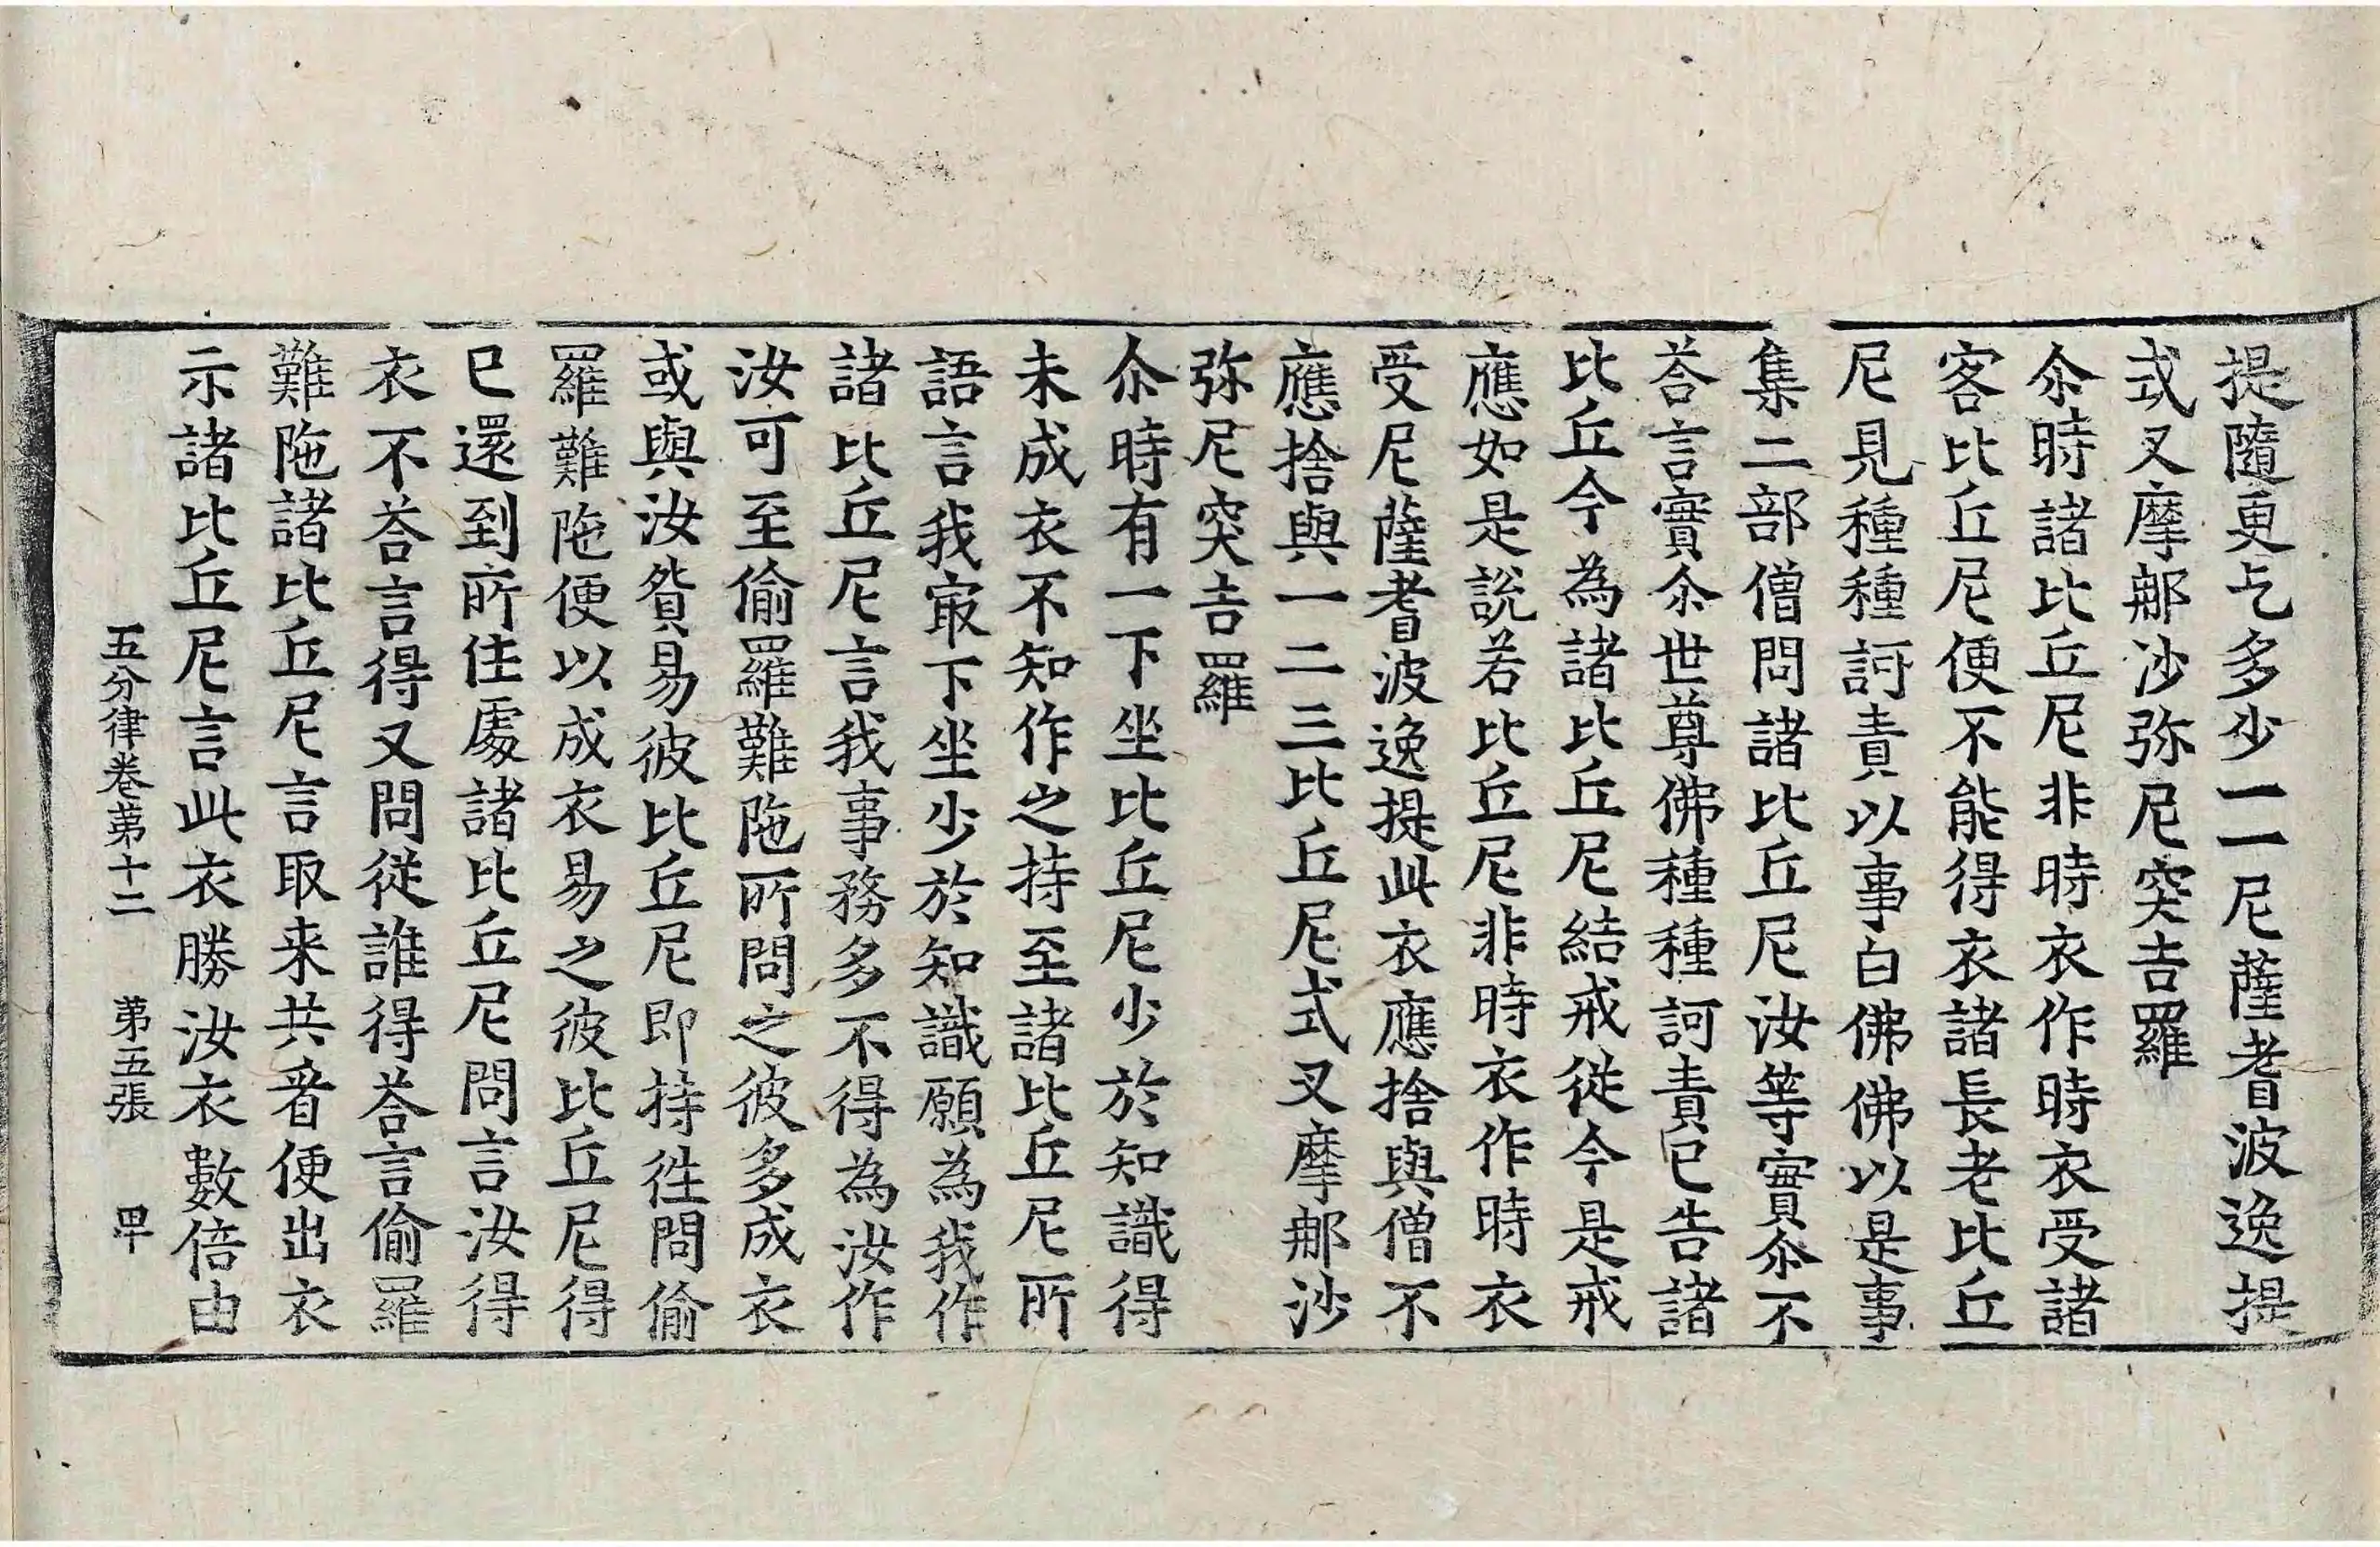 提隨更乞多少一一尼薩耆波逸提
式叉摩那沙弥尼突吉羅
尒時諸比丘尼非時衣作時衣受諸
客比丘尼便不能得衣諸長老比丘
尼見種種訶責以事白佛佛以是事
集二部僧問諸比丘尼汝等實尒不
荅言實尒世尊佛種種訶責已告諸
比丘今為諸比丘尼結戒從今是戒
應如是說若比丘尼非時衣作時衣
受尼薩耆波逸提此衣應捨與僧不
應捨與一二三比丘尼式叉摩那沙
弥尼突吉羅
尒時有一下坐比丘尼少於知識得
未成衣不知作之持至諸比丘尼所
語言我㝡下坐少於知識願為我作
諸比丘尼言我事務多不得為汝作
汝可至偷羅難陁所問之彼多成衣
或與汝貿易彼比丘尼即持徃問偷
羅難陁便以成衣易之彼比丘尼得
已還到所住處諸比丘尼問言汝得
衣不荅言得又問從誰得荅言偷羅
難陁諸比丘尼言取来共看便出衣
示諸比丘尼言此衣勝汝衣數倍由
五分律卷第十二　第五張　甲